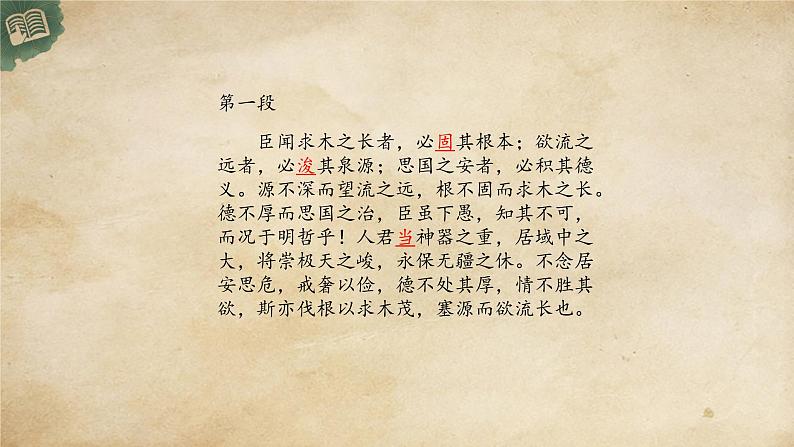 第一段
臣闻求木之长者，必固其根本；欲流之
远者，必浚其泉源；思国之安者，必积其德
义。源不深而望流之远，根不固而求木之长。
德不厚而思国之治，臣虽下愚，知其不可，
而况于明哲乎！人君当神器之重，居域中之
大，将崇极天之峻，永保无疆之休。不念居
安思危，戒奢以俭，德不处其厚，情不胜其
欲，斯亦伐根以求木茂，塞源而欲流长也。